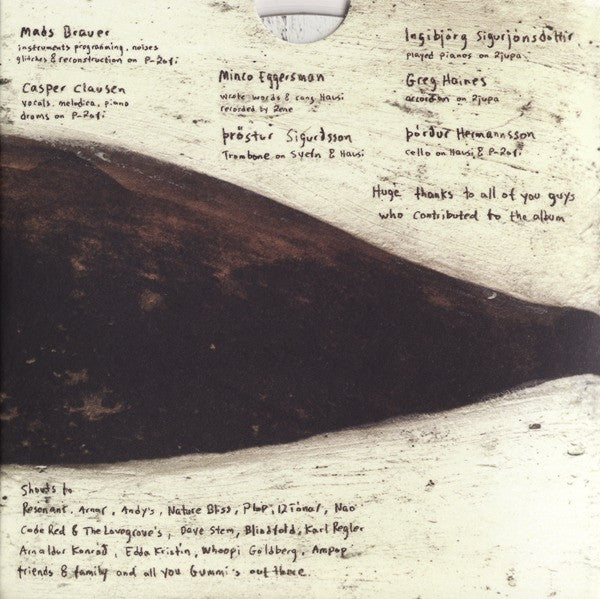 Mads Brauer
instruments programming, noises
glitches & reconstruction on P-2ofi
Casper Clausen
vocals, melodica, piano
drums on P-2ofi
Minco Eggersman
wrote words & sang Hausi
recorded by Zene
Þröstur Sigurdsson
Trombone on Svefn & Hausi
Ingibjörg Sigurjónsdóttir
played pianos on 2jupa
Greg Haines
accordion on 2jupa
Þórdur Hermannsson
cello on Hausi & P-2ofi
Huge thanks to all of you guys
who contributed to the album
Shouts to
Resonant, Arnar, Andy's, Nature Bliss, Plop, 12 Tónar, Nao
Code Red & The Lovegrove's, Dave Stem, Blindfold, Karl Regler
Arnaldur Konrað, Edda Kristín, Whoopi Goldberg, Ampop
friends & family and all you Gummi's out there.